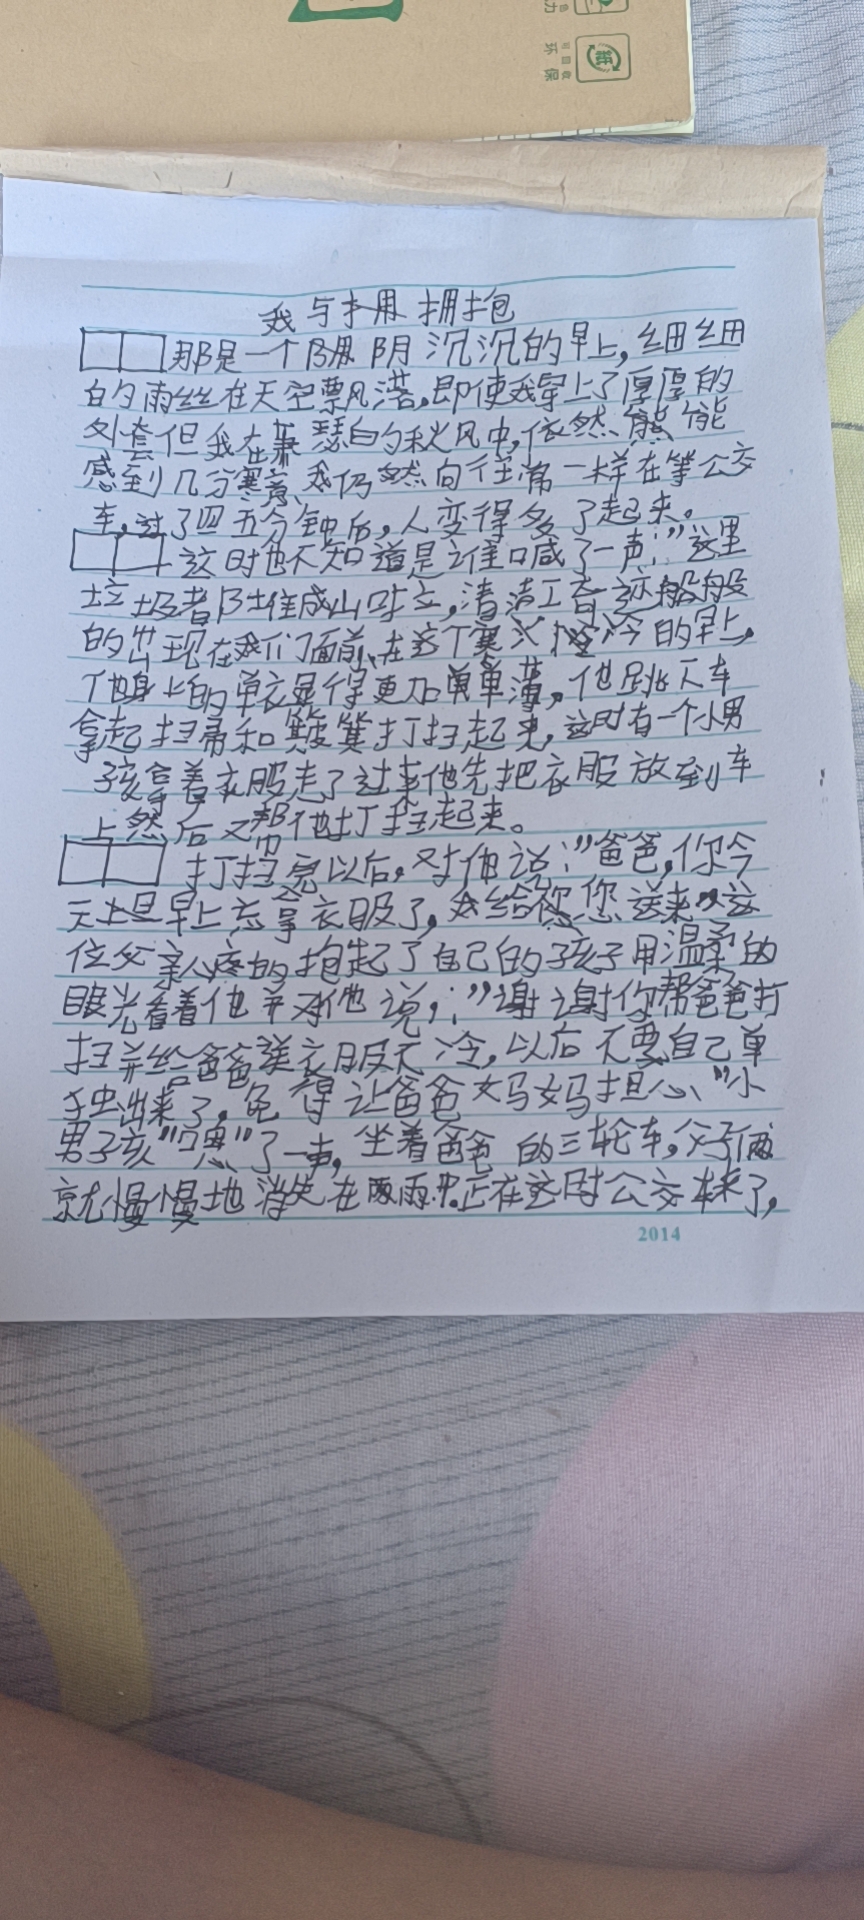 我与拥抱
那是一个阴沉沉的早上,细细
的雨丝在天空飘落,即使我穿上了厚厚的
外套但我在萧瑟的秋风中,依然能
感到几分寒意、我仍然向往常一样在等公交
车,过了四五分钟后,人变得多了起来。
这时也不知道是谁喊了一声:"这里
垃圾都堆成山了,清洁工奇迹般
的出现在我们面前、在这个寒冷的早上,
他身上的单衣显得更加单薄,他跳下车
拿起扫帚和簸箕打扫起来,这时有一个小男
孩拿着衣服走了过来他先把衣服放到车
上然后又帮他打扫起来。
打扫完以后,对他说:"爸爸,你今
天早上忘拿衣服了,给您送来"这
位父亲心疼的抱起了自己的孩子用温柔的
眼光看着他并对他说,:"谢谢你帮爸爸打
扫并给爸爸送衣服天冷,以后不要自己单
独出来了,免得让爸爸妈妈担心、"小
男孩"嗯"了一声,坐着爸爸的三轮车,父子俩
就慢慢地消失在雨中.正在这时公交车来了,
2014
环保
可回收